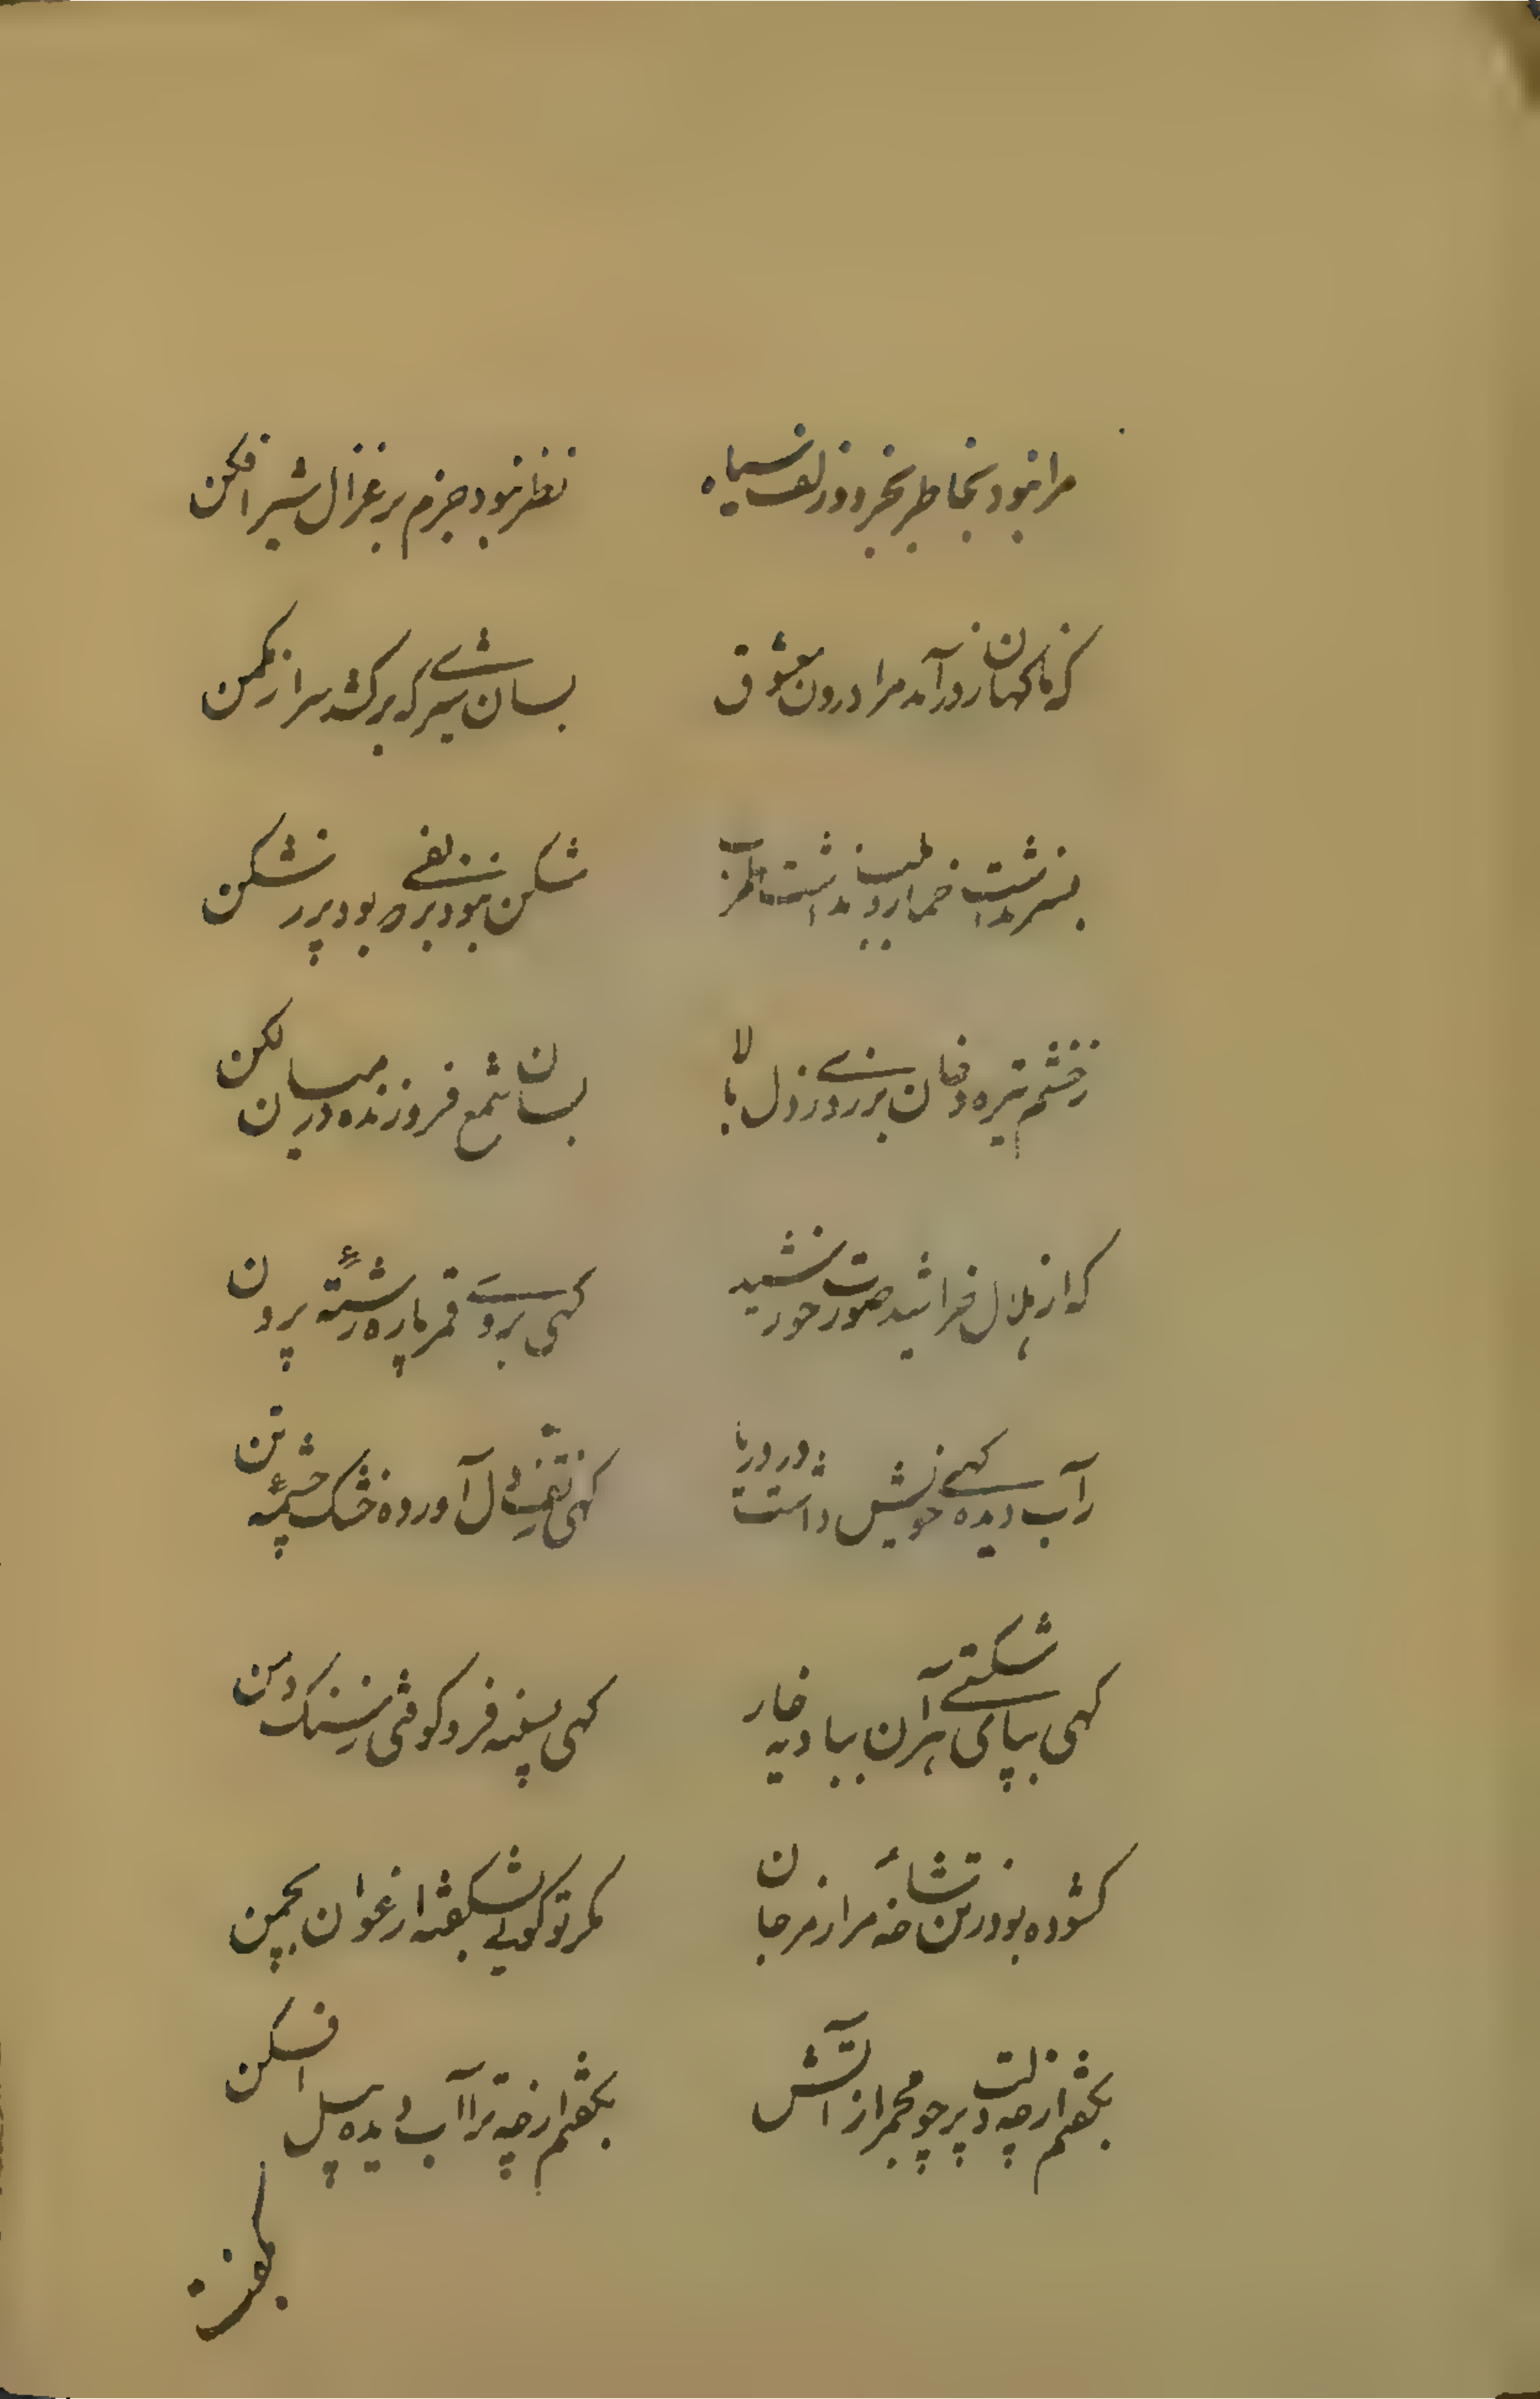 مرا نبود بخاطر بجز دو زلف سیاه نظر نبود جزم بر غزال شیر افکن
که ناکهان ز در آمد مرا درون معشوق بسان شیری که برکشد سر از مکمن
بسر نداشت خمار و بلب نداشت طرب شکن نبود بزلفی که بود پر ز شکن
ز خشم تیره دخان بر زدی ز دل بالا بسان شمع فروزنده در میان لکن
که از هلال خراشید صورت خورشید کهی بروی قمر پاره رشتهٔ پرون
ز آب دیده کهی خویش داشت در دریا کهی ز تف دل آورده خشک چشمهٔ تن
کهی بپای شکستی هر آن ببادیه خار کهی بسینه فرو کوفتی ز سنک دمن
کشوده بود ز تن شاخهٔ مرا ز مرجان مکر تو کویی بشکفته ارغوان بچمن
بکفتم از چه دلت پر چو مجمر از آتش بکفتم از چه ترا آب دیده سیل افکن